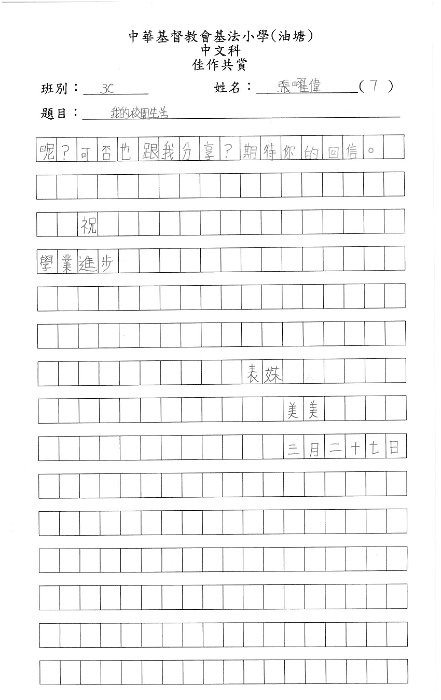 中華基督教會基法小學(油塘)
中文科
佳作共賞
班別： 3C 姓名： 張曜偉 (7)
題目： 我的校園生活
呢？可否也跟我分享？期待你的回信。
祝
學業進步
表妹
美美
三月二十七日